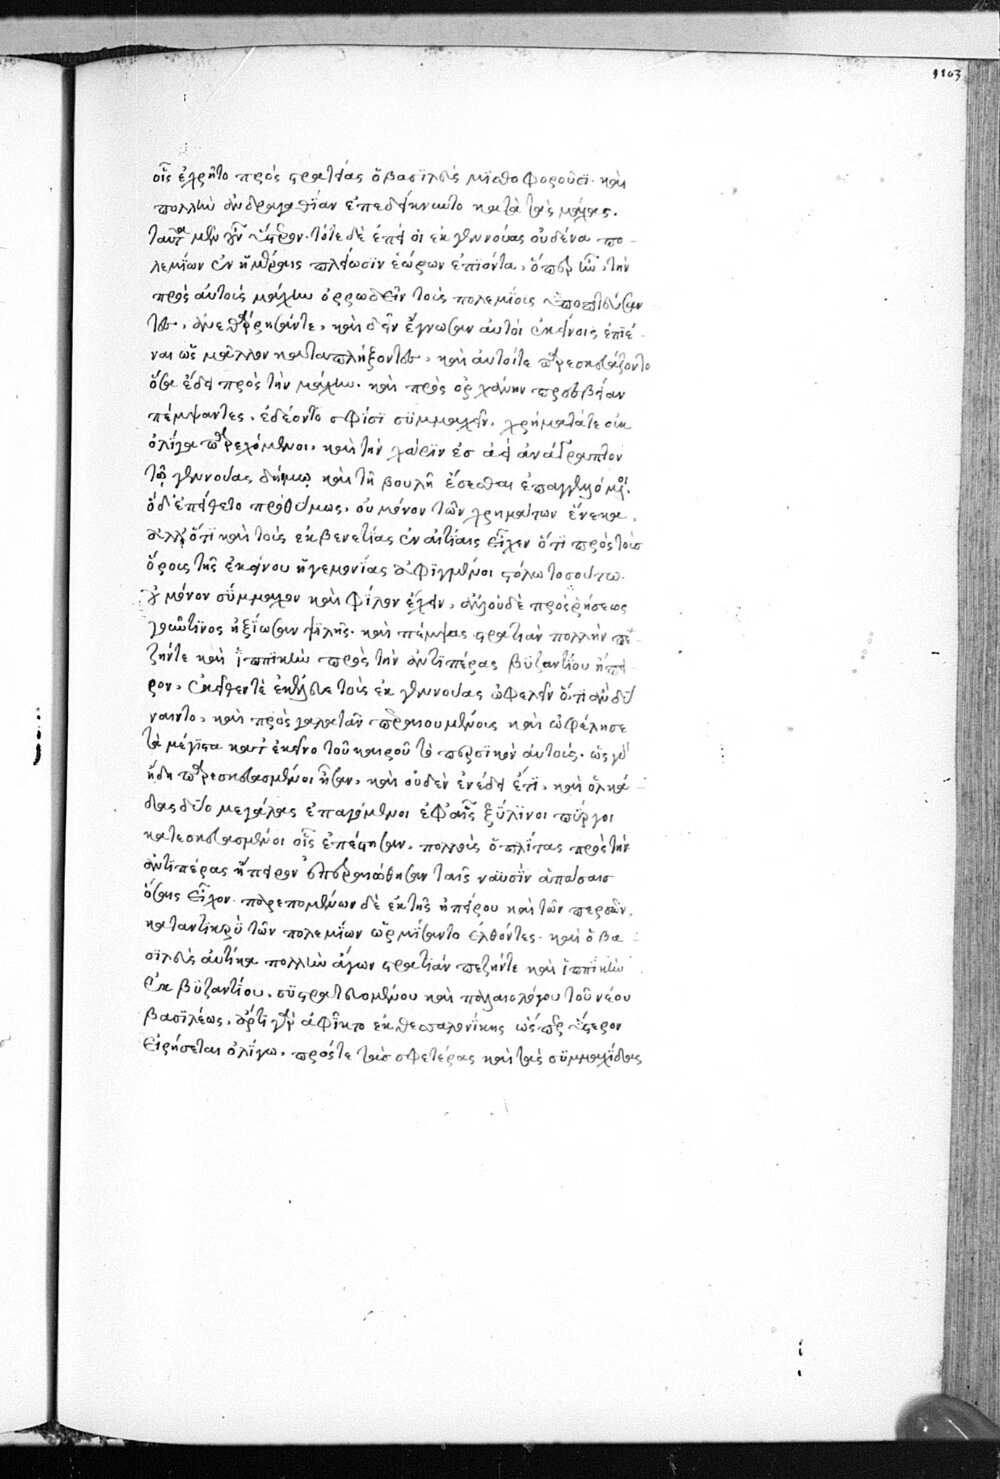 1103
οἷς ἐχρῆτο πρὸς στρατείας ὁ βασϊλεὺς μϊσθοφοροῦσϊ· καὶ
πολλὴν ἀνδραγαθΐαν ἐπεδείκνυντο κατὰ τὰς μάχας.
ταῦτα μὲν οὖν ὕστερον· τότε δὲ ἐπεὶ οἱ ἐκ γεννούας οὐδένα πο-
λεμΐων ἐν ἡμέραις πλείωσϊν ἑώρων ἐπϊόντα, ὅπερ ἦν, τὴν
πρὸς αὐτοὺς μάχην ὀρρωδεῖν τοὺς πολεμΐους ὑποπτεύσαν
τες, ἀνεθάρρησάντε, καὶ δεῖν ἔγνωσαν αὐτοὶ ἐκείνοις ἐπϊέ-
ναι ὡς μᾶλλον καταπλήξοντες, καὶ αὐτοίτε παρεσκευάζοντο
ὅσα ἔδει πρὸς τὴν μάχην· καὶ πρὸς ὀρχάνην πρεσβείαν
πέμψαντες, ἐδέοντο σφίσϊ συμμαχεῖν, χρήματάτε οὐκ
ὀλΐγα παρεχόμενοι, καὶ τὴν χάρϊν ἐσ ἀεὶ ἀνάγραπτον
τῷ γεννούας δήμῳ καὶ τῇ βουλῇ ἔσεσθαι ἐπαγγελόμενοι.
ὁ δ' ἐπείθετο προθύμως, οὐ μόνον τῶν χρημάτων ἕνεκα,
ἀλλ' ὅτϊ καὶ τοὺς ἐκ βενετΐας ἐν αἰτΐαις εἶχεν ὅτϊ πρὸς τοὺσ
ὅρους τῆς ἐκείνου ἡγεμονΐας ἀφϊγμένοι στόλῳ τοσούτῳ.
οὐ μόνον σύμμαχον καὶ φΐλον ἔχειν, ἀλλ' οὐδὲ προσρήσεως
γοῦντϊνος ἠξΐωσαν ψϊλῆς· καὶ πέμψας στρατϊὰν πολλὴν πε-
ζήντε καὶ ἱππϊκὴν πρὸς τὴν ἀντϊπέρας βϋζαντΐου ἤπει-
ρον, ἐκεῖθεντὲ ἐκέλευε τοὺς ἐκ γεννούας ὠφελεῖν ὅ,τϊ ἂν δύ
ναιντο, καὶ πρὸς γαλατᾶν περαιουμένους καὶ ὠφέλησε
τὰ μέγϊστα κατ' ἐκεῖνο τοῦ καιροῦ τὸ περσϊκὸν αὐτούς. ὡς γὰρ
ἤδη παρεσκευασμένοι ἦσαν, καὶ οὐδὲν ἐνέδει ἔτϊ, καὶ ὁλκά
δας δύο μεγάλας ἐπαγόμενοι ἐφ' αἷς ξΰλϊνοι πΰργοι
κατεσκευασμένοι οἷς ἐπέστησαν, πολλοὺς ὁπλΐτας πρὸς τὴν
ἀντϊπέρας ἤπειρον ἐπεραιώθησαν ταῖς ναυσΐν ἁπάσαισ
ὅσας εἶχον· παρεπομένων δὲ ἐκ τῆς ἠπείρου καὶ τῶν περσῶν,
καταντϊκρὺ τῶν πολεμΐων ὡρμΐσαντο ἐλθόντες. καὶ ὁ βα
σϊλεὺς αὐτΐκα πολλὴν ἄγων στρατϊὰν πεζήντε καὶ ἱππϊκὴν
ἐκ βϋζαντΐου, σϋστρατευομένου καὶ παλαιολόγου τοῦ νέου
βασϊλέως, ἄρτϊ γὰρ ἀφῖκτο ἐκ θεσσαλονΐκης ὥσπερ ὕστερον
εἰρήσεται ὀλΐγῳ, πρόστε τὰσ σφετέρας καὶ τὰς σϋμμαχΐδας